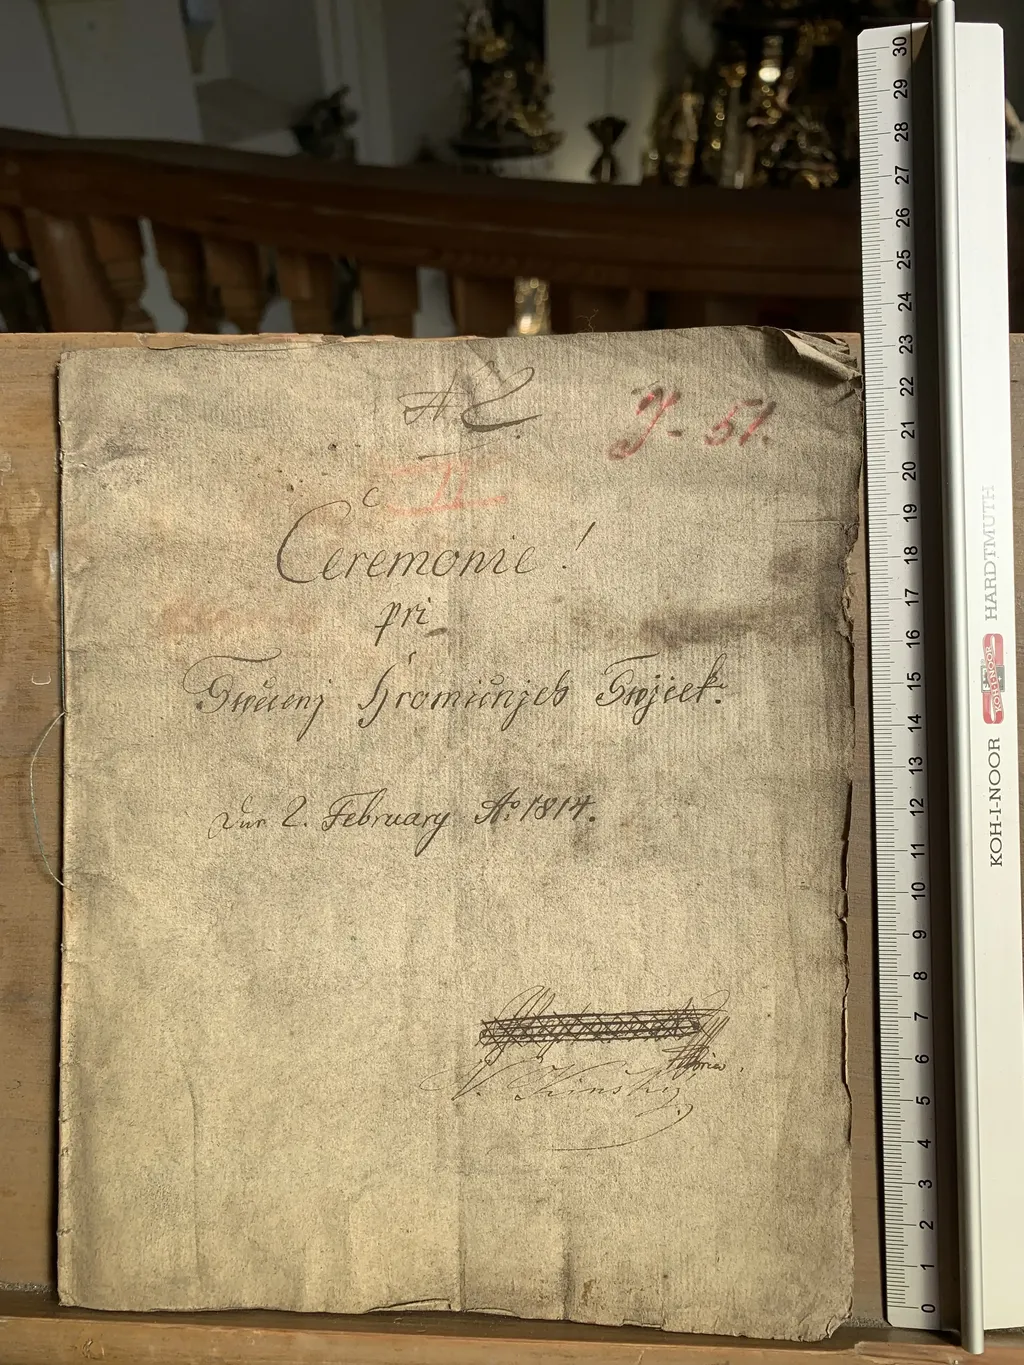 J - 51.
II
Ceremonie!
pri
Swěcenj Hromičnjch Swjcek.
Dnn 2. February Aº 1814.
30
29
28
27
26
25
24
23
22
21
20
19
18
17
16
15
14
13
12
11
10
9
8
7
6
5
4
3
2
1
0
KOH-I-NOOR HARDTMUTH